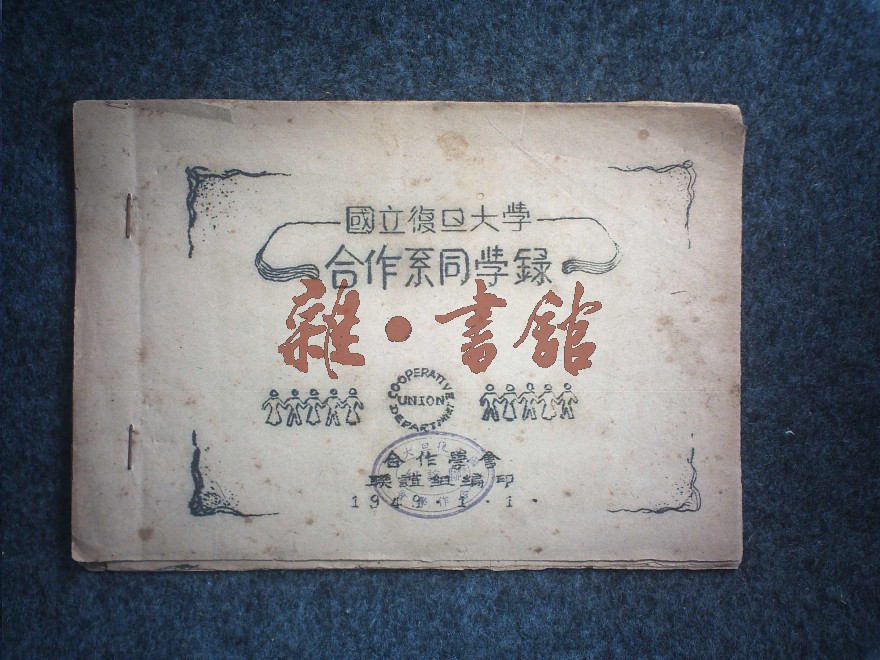 國立復旦大學
合作系同學錄
雜·書館
COOPERATIVE
UNION
DEPARTMENT
合作學會
聯誼組編印
1949·1·1·